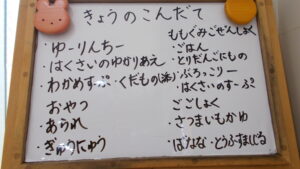 きょうのこんだて
・ゆーりんちー
・はくさいのゆかりあえ
・わかめすーぷ・くだもの
おやつ
・あられ
・ぎゅうにゅう
ももぐみごぜんしょく
・ごはん
・とりだんごにもの
・ぶろっこりー
・はくさいのすーぷ
ごごしょく
・さつまいもかゆ
・ばなな・とうふすまし